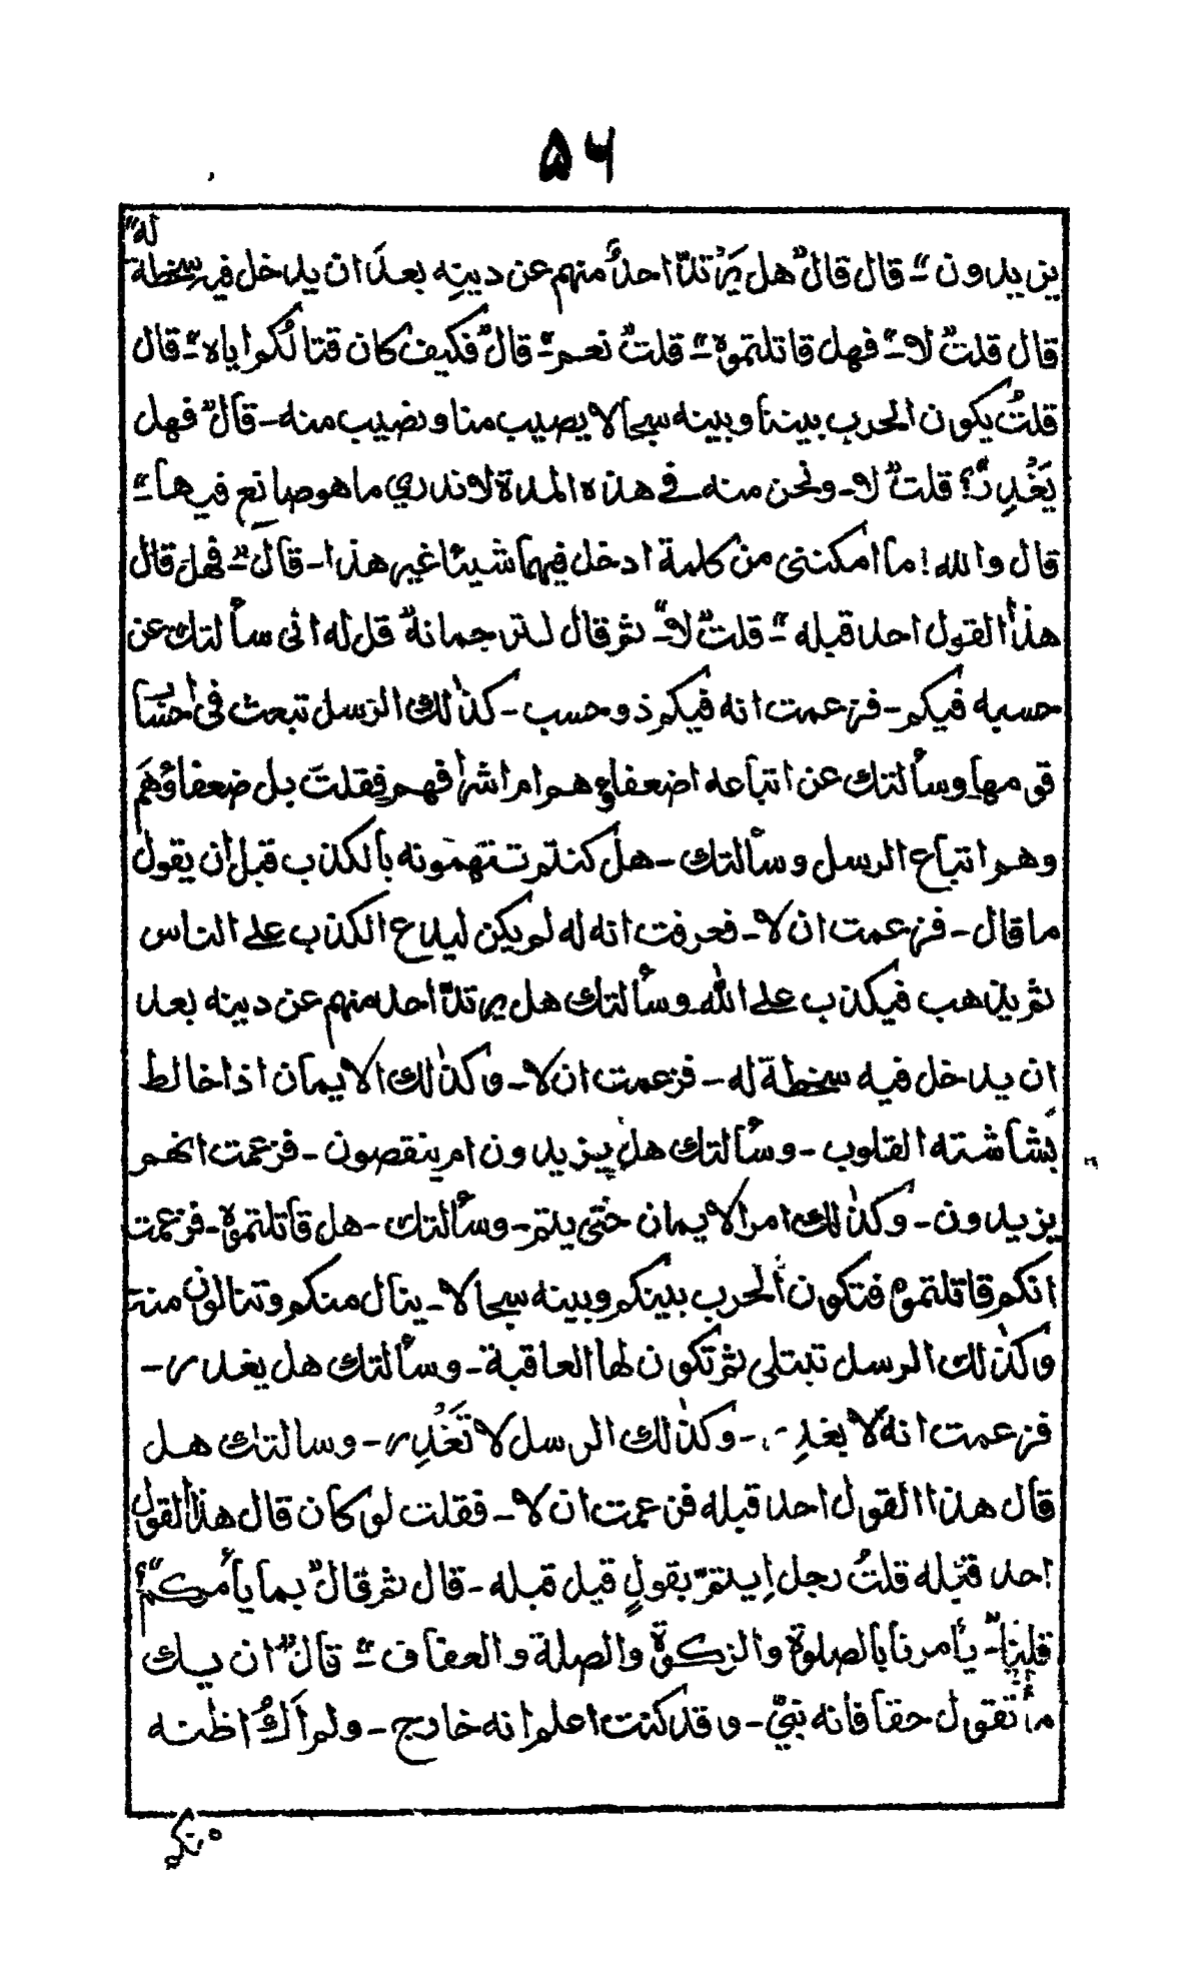 ۵۶
يزيدون" - قال قال" هل يَرْتدّ احدٌ منهم عن دينِه بعدَ ان يدخل فيه سخطة له"
قال قلتُ" لا" - فهل قاتلتموه" - قلتُ" نعم" - قال" فكيف كان قتالُكم اياه" - قال
قلتُ يكون الحرب بيننا وبينه سجالا يصيب منا ونصيب منه - قال" فهل
يَغْدِرُ؟ قلتُ" لا - ونحن منه في هذه المدة لا ندري ما هو صانع فيها" -
قال والله! ما امكنني من كلمة ادخل فيها شيئا غير هذا - قال" - فهل قال
هذا القول احد قبله" - قلت" لا" - ثم قال لترجمانه" قل له اني سألتك عن
حسبه فيكم - فزعمت انه فيكم ذو حسب - كذٰلك الرسل تبعث في احساب
قومها وسألتك عن اتباعه اضعفاؤهم ام اشرافهم فقلتَ بل ضعفاؤهم
وهم اتباع الرسل وسألتك - هل كنتم تتهمونه بالكذب قبل ان يقول
ما قال - فزعمت ان لا - فعرفت انه له لم يكن ليدع الكذب على الناس
ثم يذهب فيكذب على الله وسألتك هل يرتدّ احد منهم عن دينه بعد
ان يدخل فيه سخطة له - فزعمت ان لا - وكذٰلك الايمان اذا خالط
بشاشته القلوب - وسألتك هل يزيدون ام ينقصون - فزعمت انهم
يزيدون - وكذٰلك امر الايمان حتى يتم - وسألتك - هل قاتلتموه - فزعمت
انكم قاتلتموه فتكون الحرب بينكم وبينه سجالا - ينال منكم وتنالون منه
وكذٰلك الرسل تبتلى ثم تكون لها العاقبة - وسألتك هل يغدر -
فزعمت انه لا يغدِر - وكذٰلك الرسل لا تَغْدِر - وسالتك هل
قال هذا القول احد قبله فزعمت ان لا - فقلت لو كان قال هذا القول
احد قبله قلتُ رجل اِيتمّ بقولٍ قيل قبله - قال ثم قال" بما يأمركم"؟
قلنا" - يأمرنا بالصلوة والزكوة والصلة والعفاف" - قال" ان يك
ما تقول حقا فانه نبيّ - وقد كنت اعلم انه خارج - ولم اَكُ اظنه